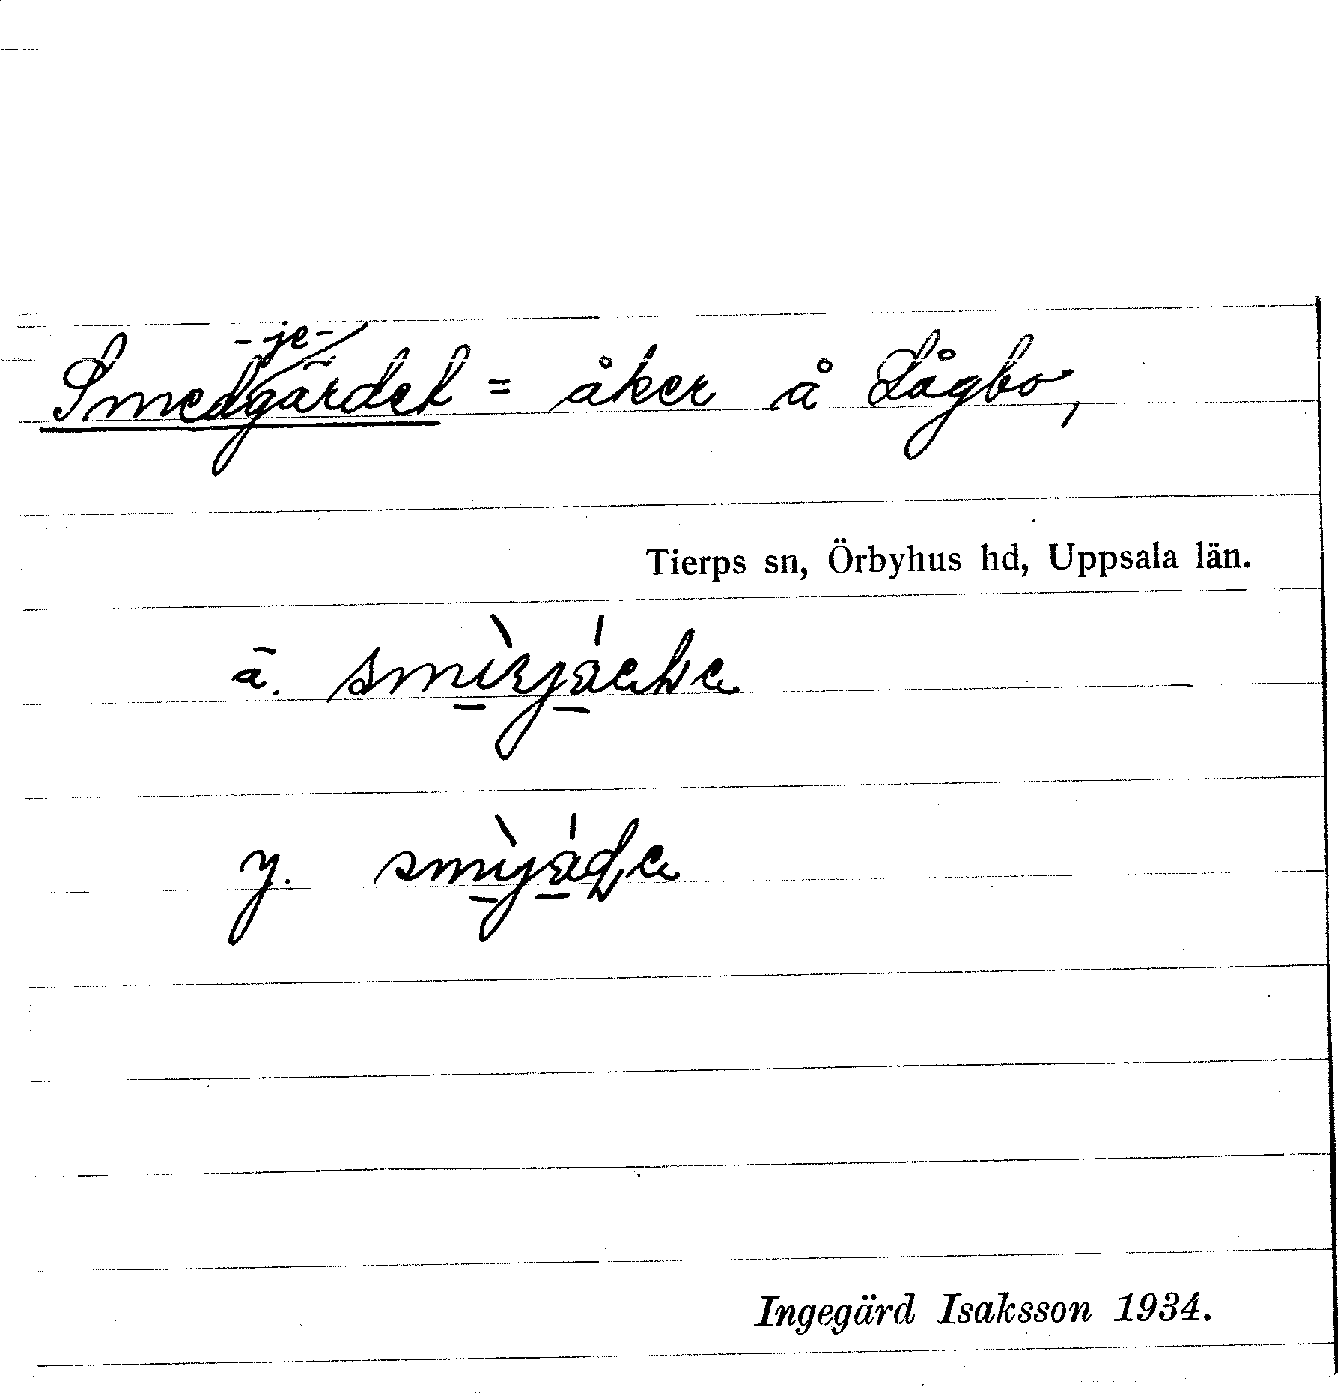 -je-
Smedgärdet = åker å Lågbo,
Tierps sn, Örbyhus hd, Uppsala län.
ä.
y.
Ingegärd Isaksson 1934.